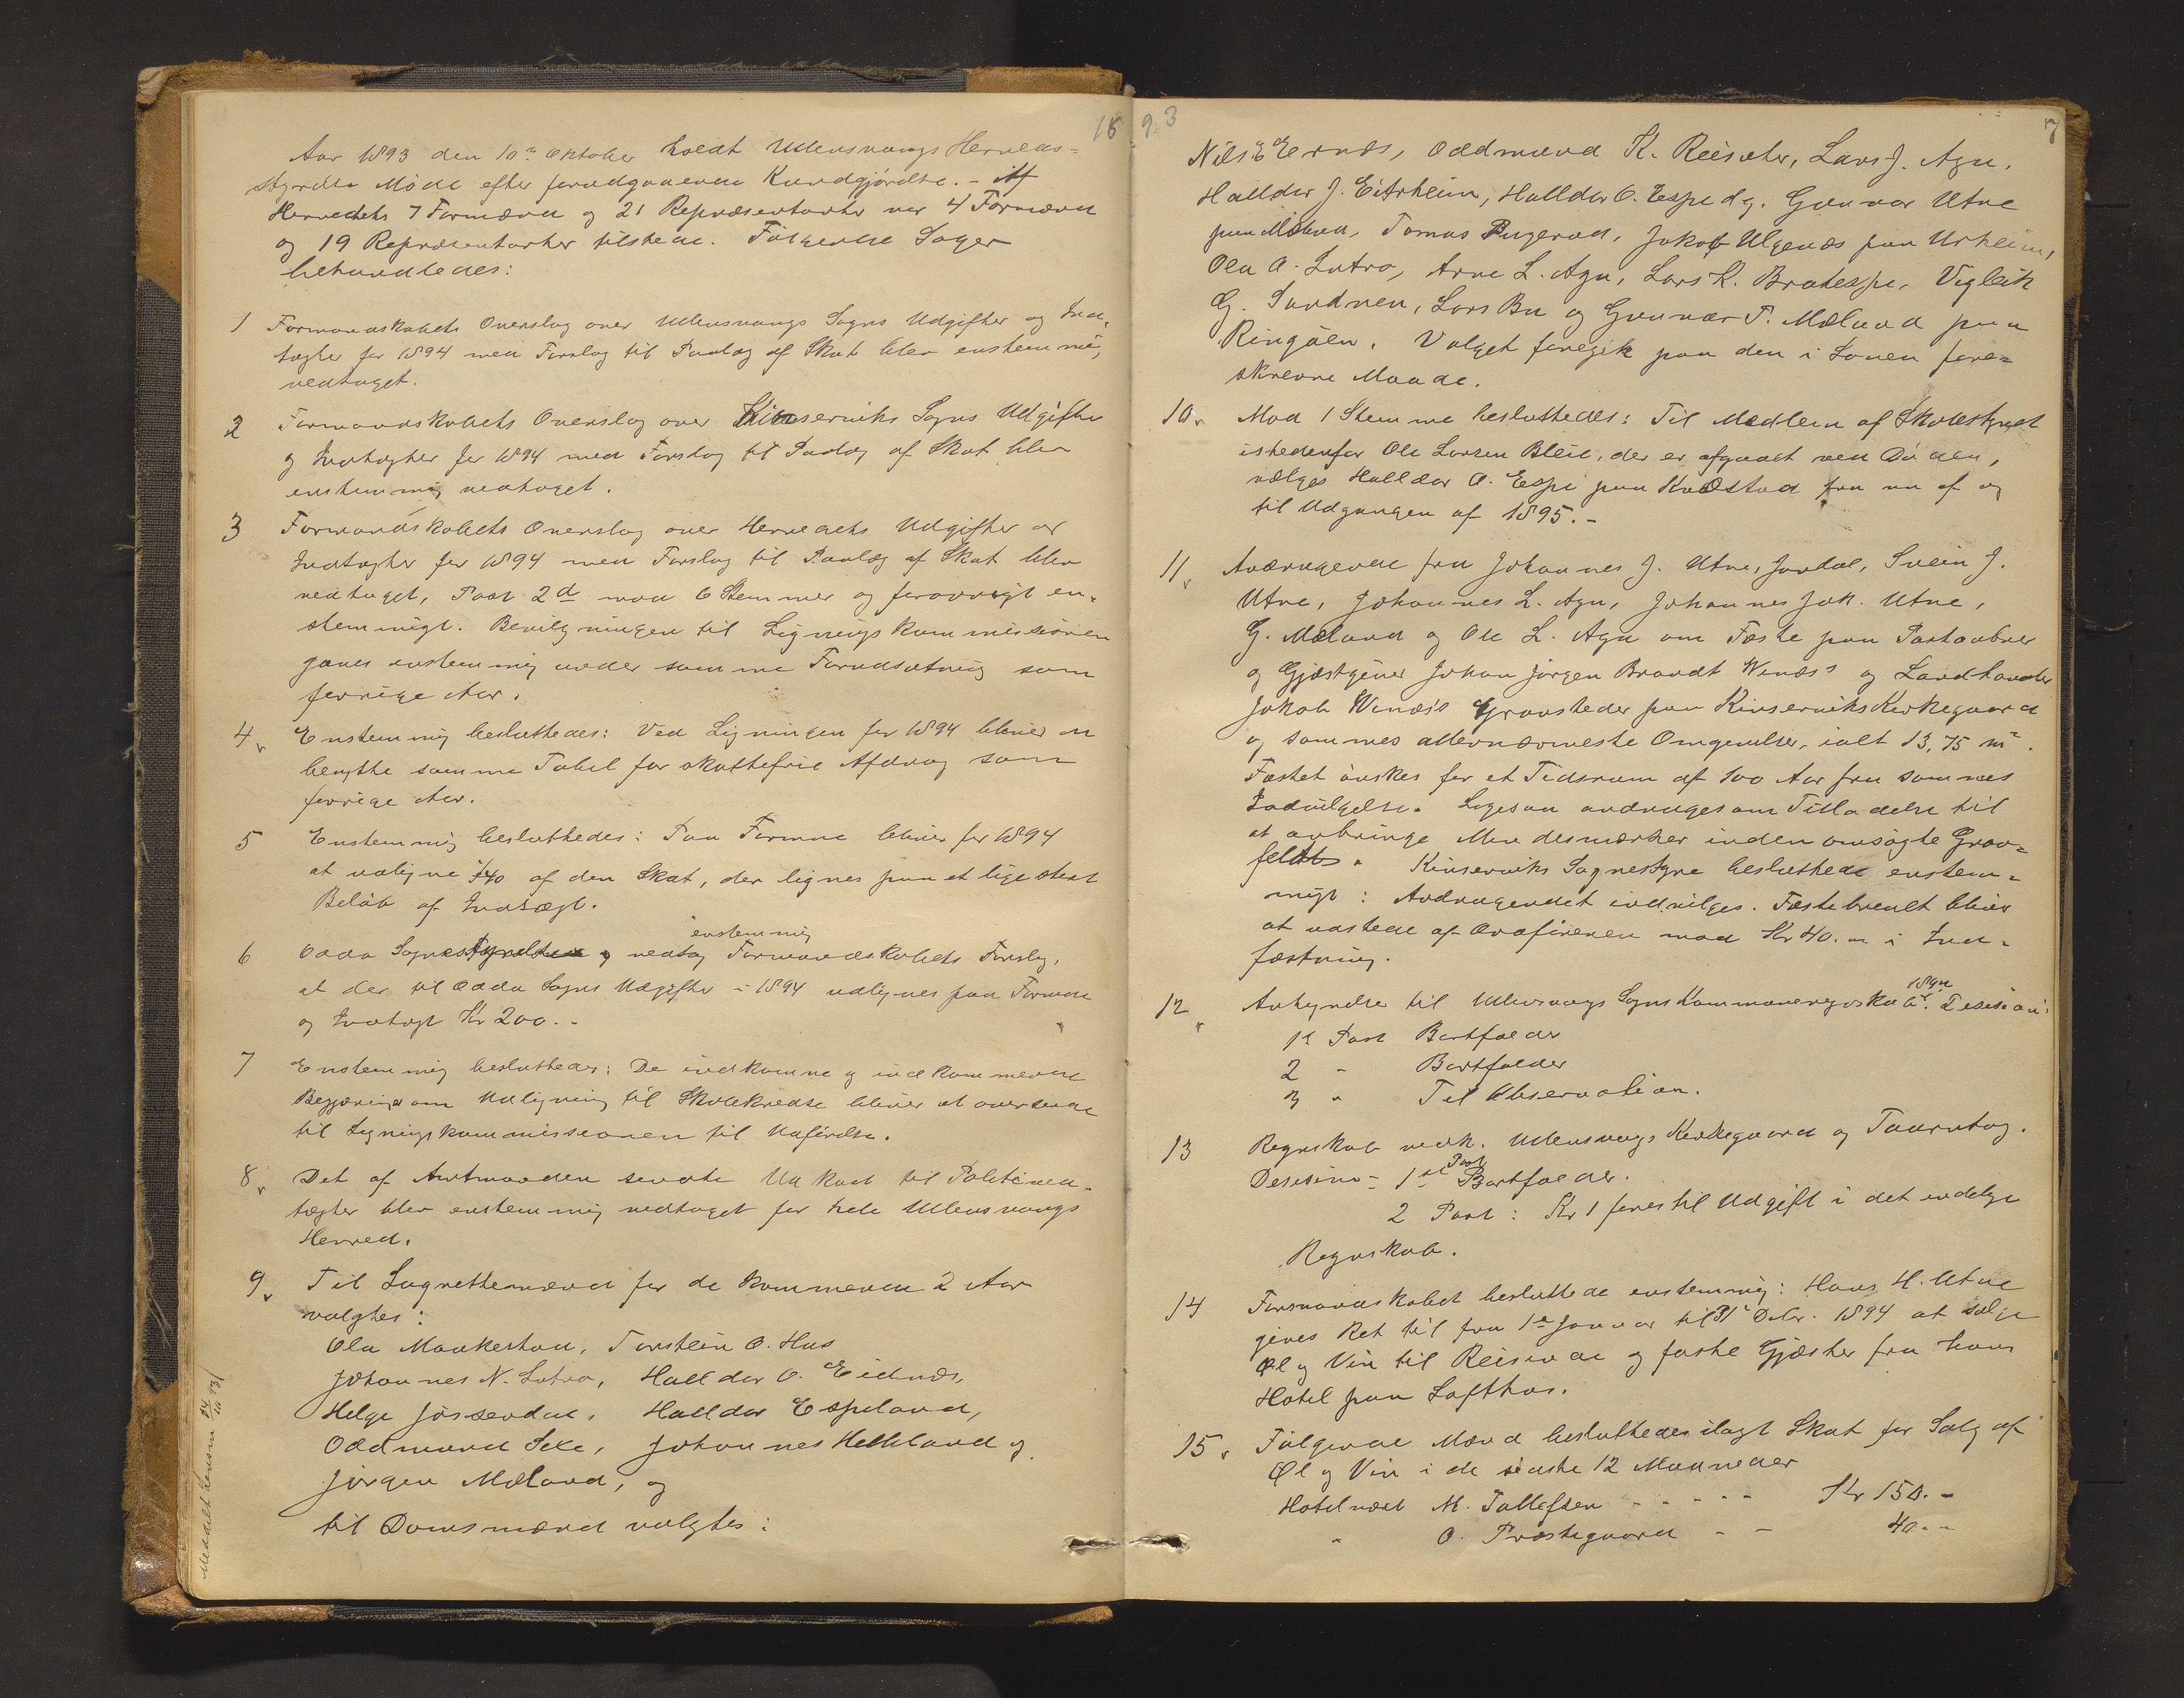 18 93
Aar 1893 den 10de Oktober holdt Ullensvangs Herreds=
styrelse Møde efter forudgaaende Kundgjørelse. - Af
Herredets 7 Formænd og 21 Repræsentanter var 4 Formænd
og 19 Repræsentanter tilstede. Følgende Sager
behandledes:
1 Formandskabets Overslag over Ullensvangs Sogns Udgifter og Ind-
tægter for 1894 med Forslag til Paalæg af Skat blev enstemmig
vedtaget.
2 Formandskabets Overslag over Kinserviks Sogns Udgifter
og Indtægter for 1894 med Forslag til Paalæg af Skat blev
enstemmig vedtaget.
3 Formandskabets Overslag over Herredets Udgifter og
Indtægter for 1894 med Forslag til Paalæg af Skat blev
vedtaget, Post 2d mod 6 Stemmer og forøvrigt en-
stemmigt. Bevilgningen til Ligningskommissionen
gaves enstemmig under samme Forudsætning som
forrige Aar.
4 Enstemmig besluttedes: Ved Ligningen for 1894 bliver at
benytte samme Tabel for skattefrie Afdrag som
forrige Aar.
5 Enstemmig besluttedes: Paa Formue bliver for 1894
at udligne 1/40 af den Skat, der lignes paa et lige stort
Beløb af Indtægt.
enstemmig
6 Odda Sognestyrelse vedtog Formandskabets Forslag,
at der til Odda Sogns Udgifter i 1894 udlignes paa Formue
og Indtægt Kr 200.-
7 Enstemmig besluttedes: De indkomne og indkommende
Begjæringer om Udligning til Skolekredse bliver at oversende
til Ligningskommissionen til Udførelse.
8 Det af Amtmanden sendte Udkast til Politived-
tægter blev enstemmig vedtaget for hele Ullensvangs
Herred.
9 Til Lagrettemænd for de kommende 2 Aar
valgtes:
Ola Maakestad, Torstein O. Hus
Johannes N. Lutro, Halldor O. Eidnæs,
Helge Jøssendal, Halldor Espeland,
Oddmund Sexe, Johannes Helleland og
Jørgen Mæland, og
til Domsmænd valgtes:
Meddelt Lensm 24/10 93
7
Nils E Ernæs, Oddmund K. Reisæter, Lars J. Aga,
Halldor J. Eitrheim, Halldor O. Espe dy. Gunnar Utne
paa Mæland, Tomas Rogerud, Jakob Ulgenæs paa Urheim,
Ola A. Lutro, Arne L. Aga, Lars K. Bratespe, Vigleik
G. Sandven, Lars Bu og Gunnar T. Mæland paa
Ringøen. Valget foregik paa den i Loven fore=
skrevne Maade.
10 Mod 1 Stemme besluttedes: Til Medlem af Skolestyret
istedenfor Ole Larsen Bleie, der er afgaaet ved Døden,
vælges Halldor O. Espe paa Kvæstad fra nu af og
til Udgangen af 1895.-
11 Andragende fra Johannes J. Utne, Jordal, Svein J.
Utne, Johannes L. Aga, Johannes Joh. Utne,
G. Mæland og Ole L. Aga om Fæste paa Postaabner
og Gjæstgiver Johan Jørgen Brandt Wenæs's og Landhandler
Jakob Wenæs's Gravsteder paa Kinserviks Kirkegaard
og sammes allernærmeste Omgivelser, ialt 13,75 m².
Fæstet ønskes for et Tidsrum af 100 Aar fra sammes
Indvilgelse. Ligesaa andrages om Tilladelse til
at anbringe Mindesmærker inden omsøgte Grav=
feldt. Kinserviks Sognestyre besluttede enstem-
migt: Andragendet indvilges. Fæstebrevet bliver
at udstede af Ordføreren mod Kr 40.00 i Ind-
fæstning.
12 Antegnelser til Ullensvangs Sogns Kommuneregnskab f. 1892. Desision:
1te Post Bortfalder
2 " Bortfalder
3 " Til Observation.
13 Regnskab vedk. Ullensvangs Kirkegaard og Taarntag.
Desision: 1ste Post Bortfalder.
2 Post: Kr 1 føres til Udgift i det endelige
Regnskab.
14 Formandskabet besluttede enstemmig: Hans H. Utne
gives Ret til fra 1ste Januar til 31te Debr. 1894 at sælge
Øl og Vin til Reisende og faste Gjæster fra hans
Hotel paa Lofthus.
15 Følgende Mænd besluttedes ilagt Skat for Salg af
Øl og Vin i de sidste 12 Maaneder
Hotelvært M. Tollefsen - - - - - Kr 150.-
" O. Præstegaard - - 40.-